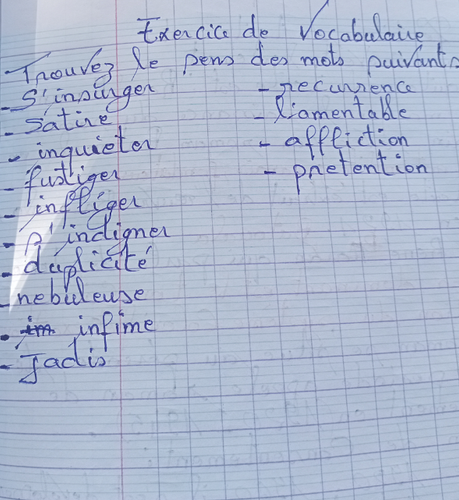 Exercice de Vocabulaire
Trouvez le sens des mots suivants
- S'insurger
- Satire
- inquieter
- fustiger
- infliger
- s'indigner
- duplicité
- nebuleuse
- infime
- Jadis
- recurrence
- l'amentable
- affliction
- pretention